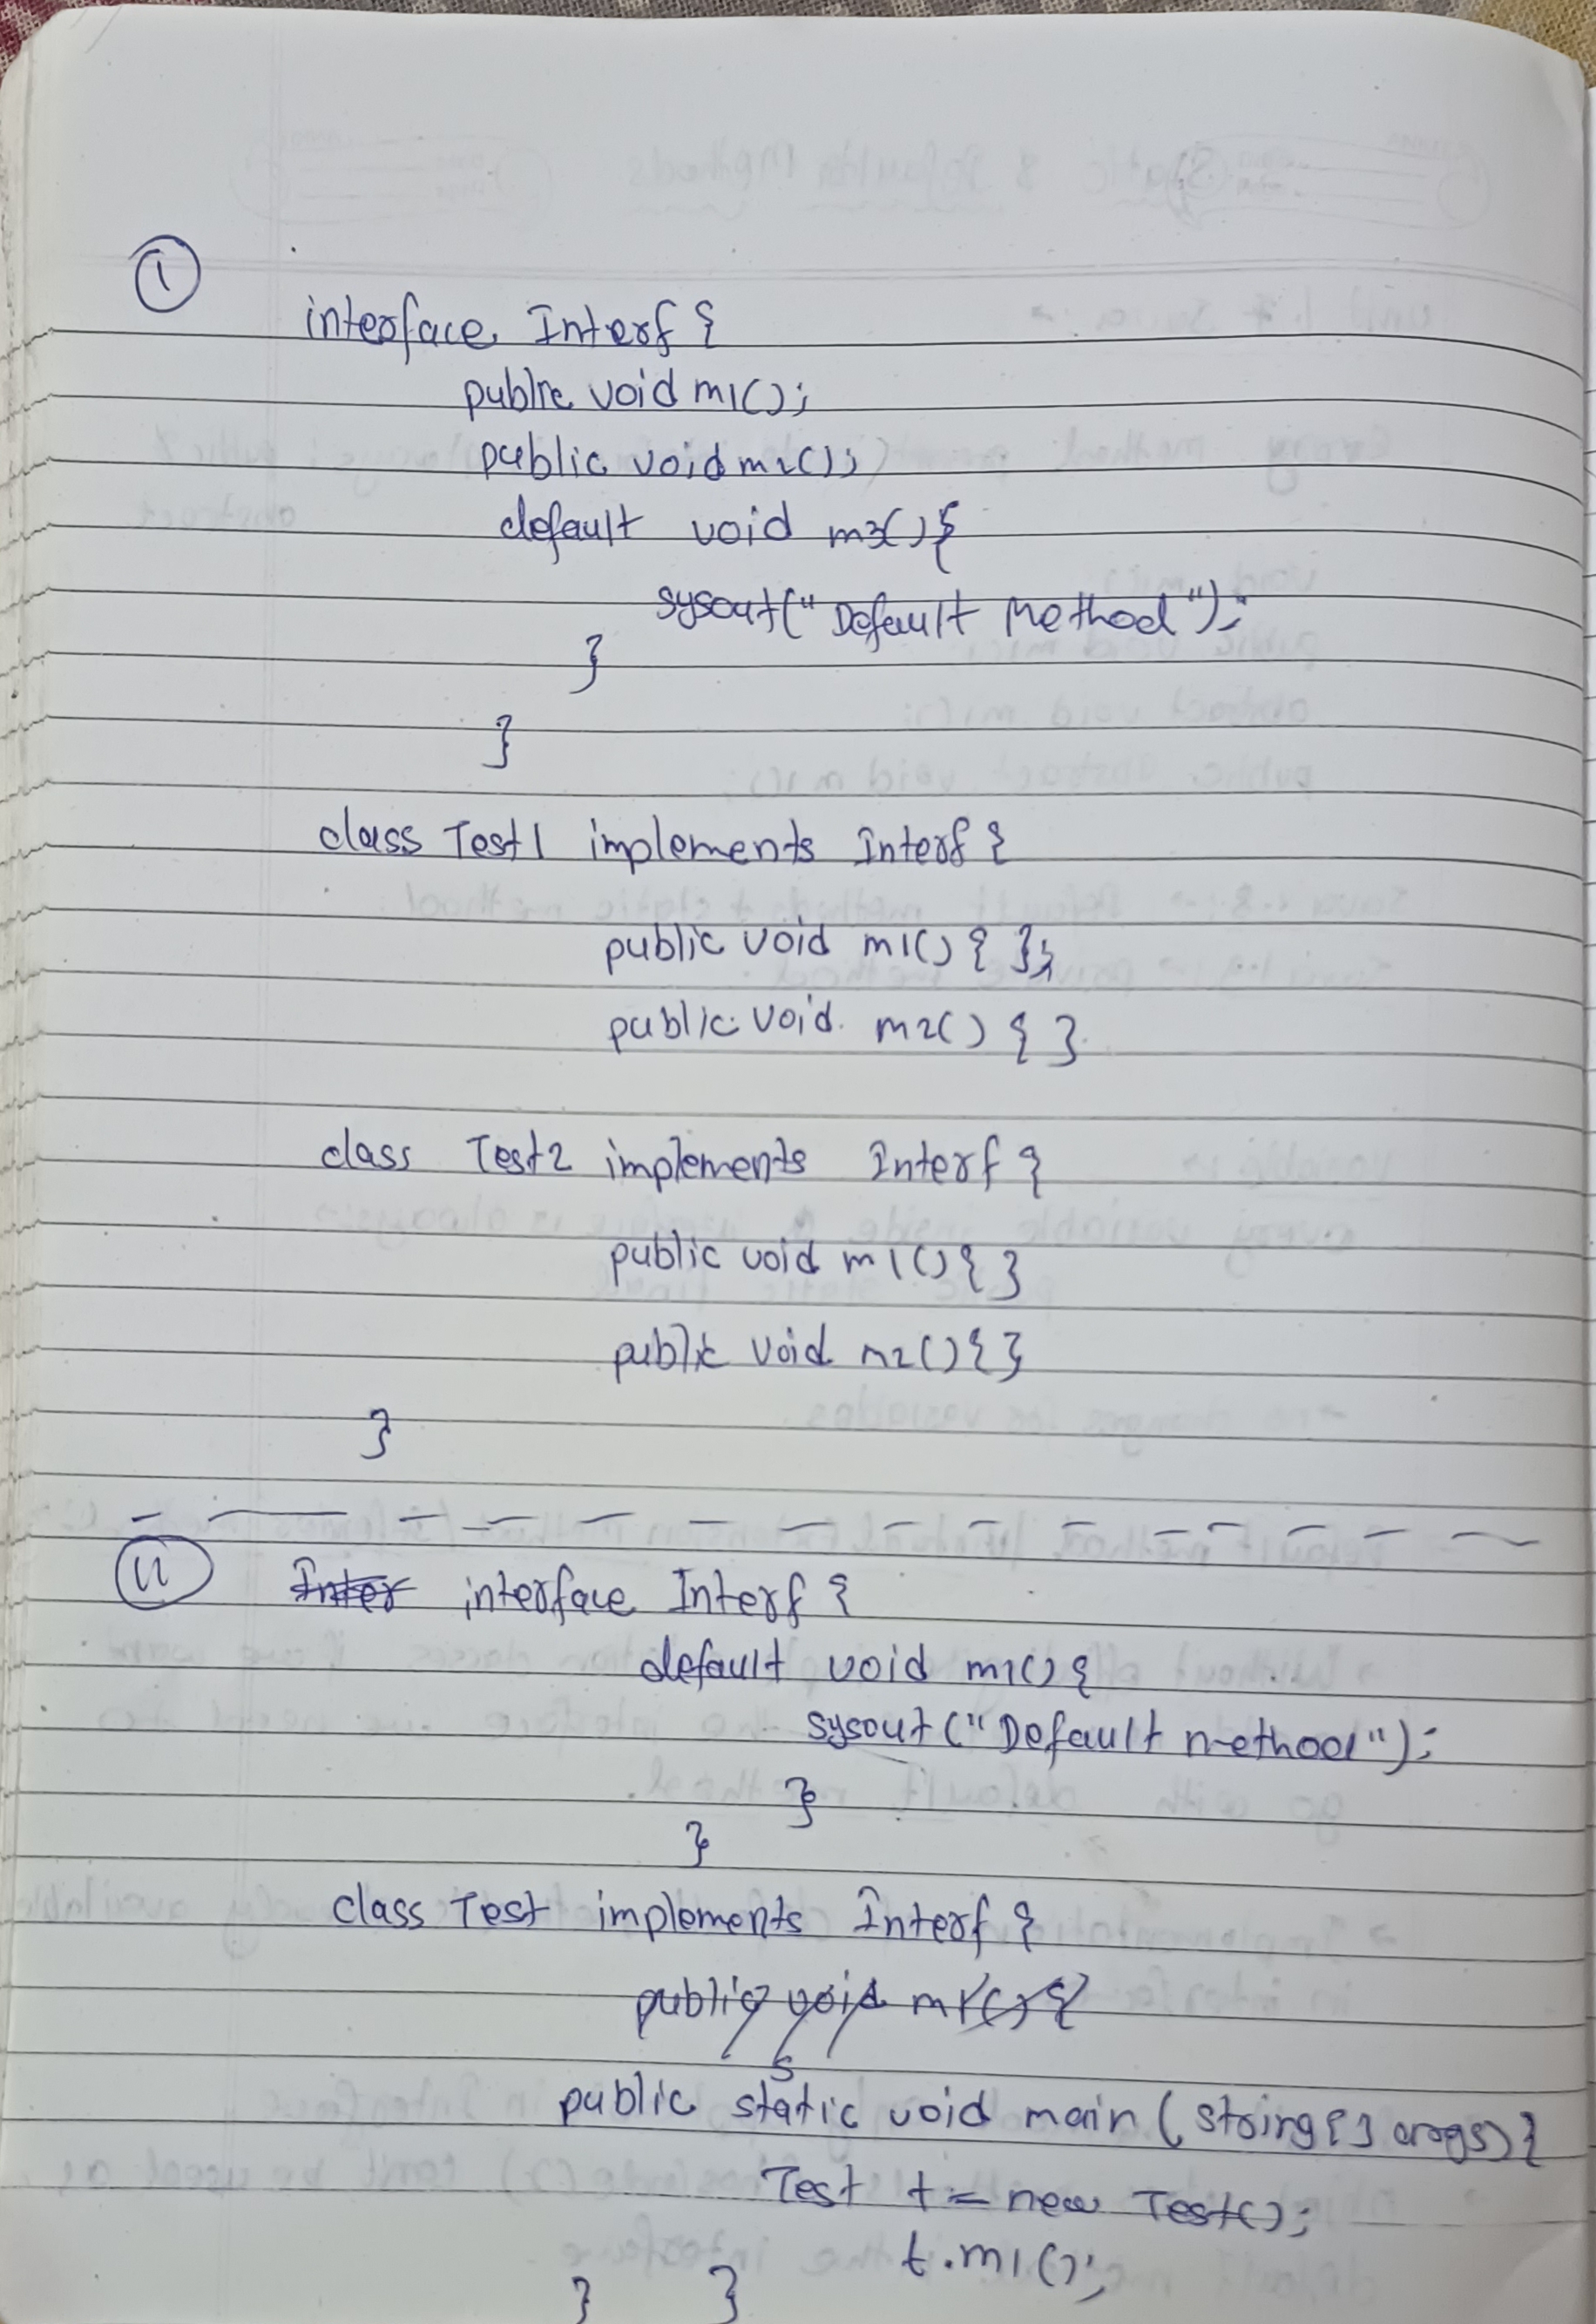 ①
interface Interf {
public void m1();
public void m2();
default void m3(){
sysout("Default Method");
}
}
class Test1 implements Interf {
public void m1() { };
public void m2() { }
class Test2 implements Interf {
public void m1(){ }
public void m2(){ }
}
ii Inter interface Interf {
default void m1(){
sysout("Default method");
}
}
class Test implements Interf {
public void m1(){
public static void main (string{} args){
Test t = new Test();
t.m1();
} }